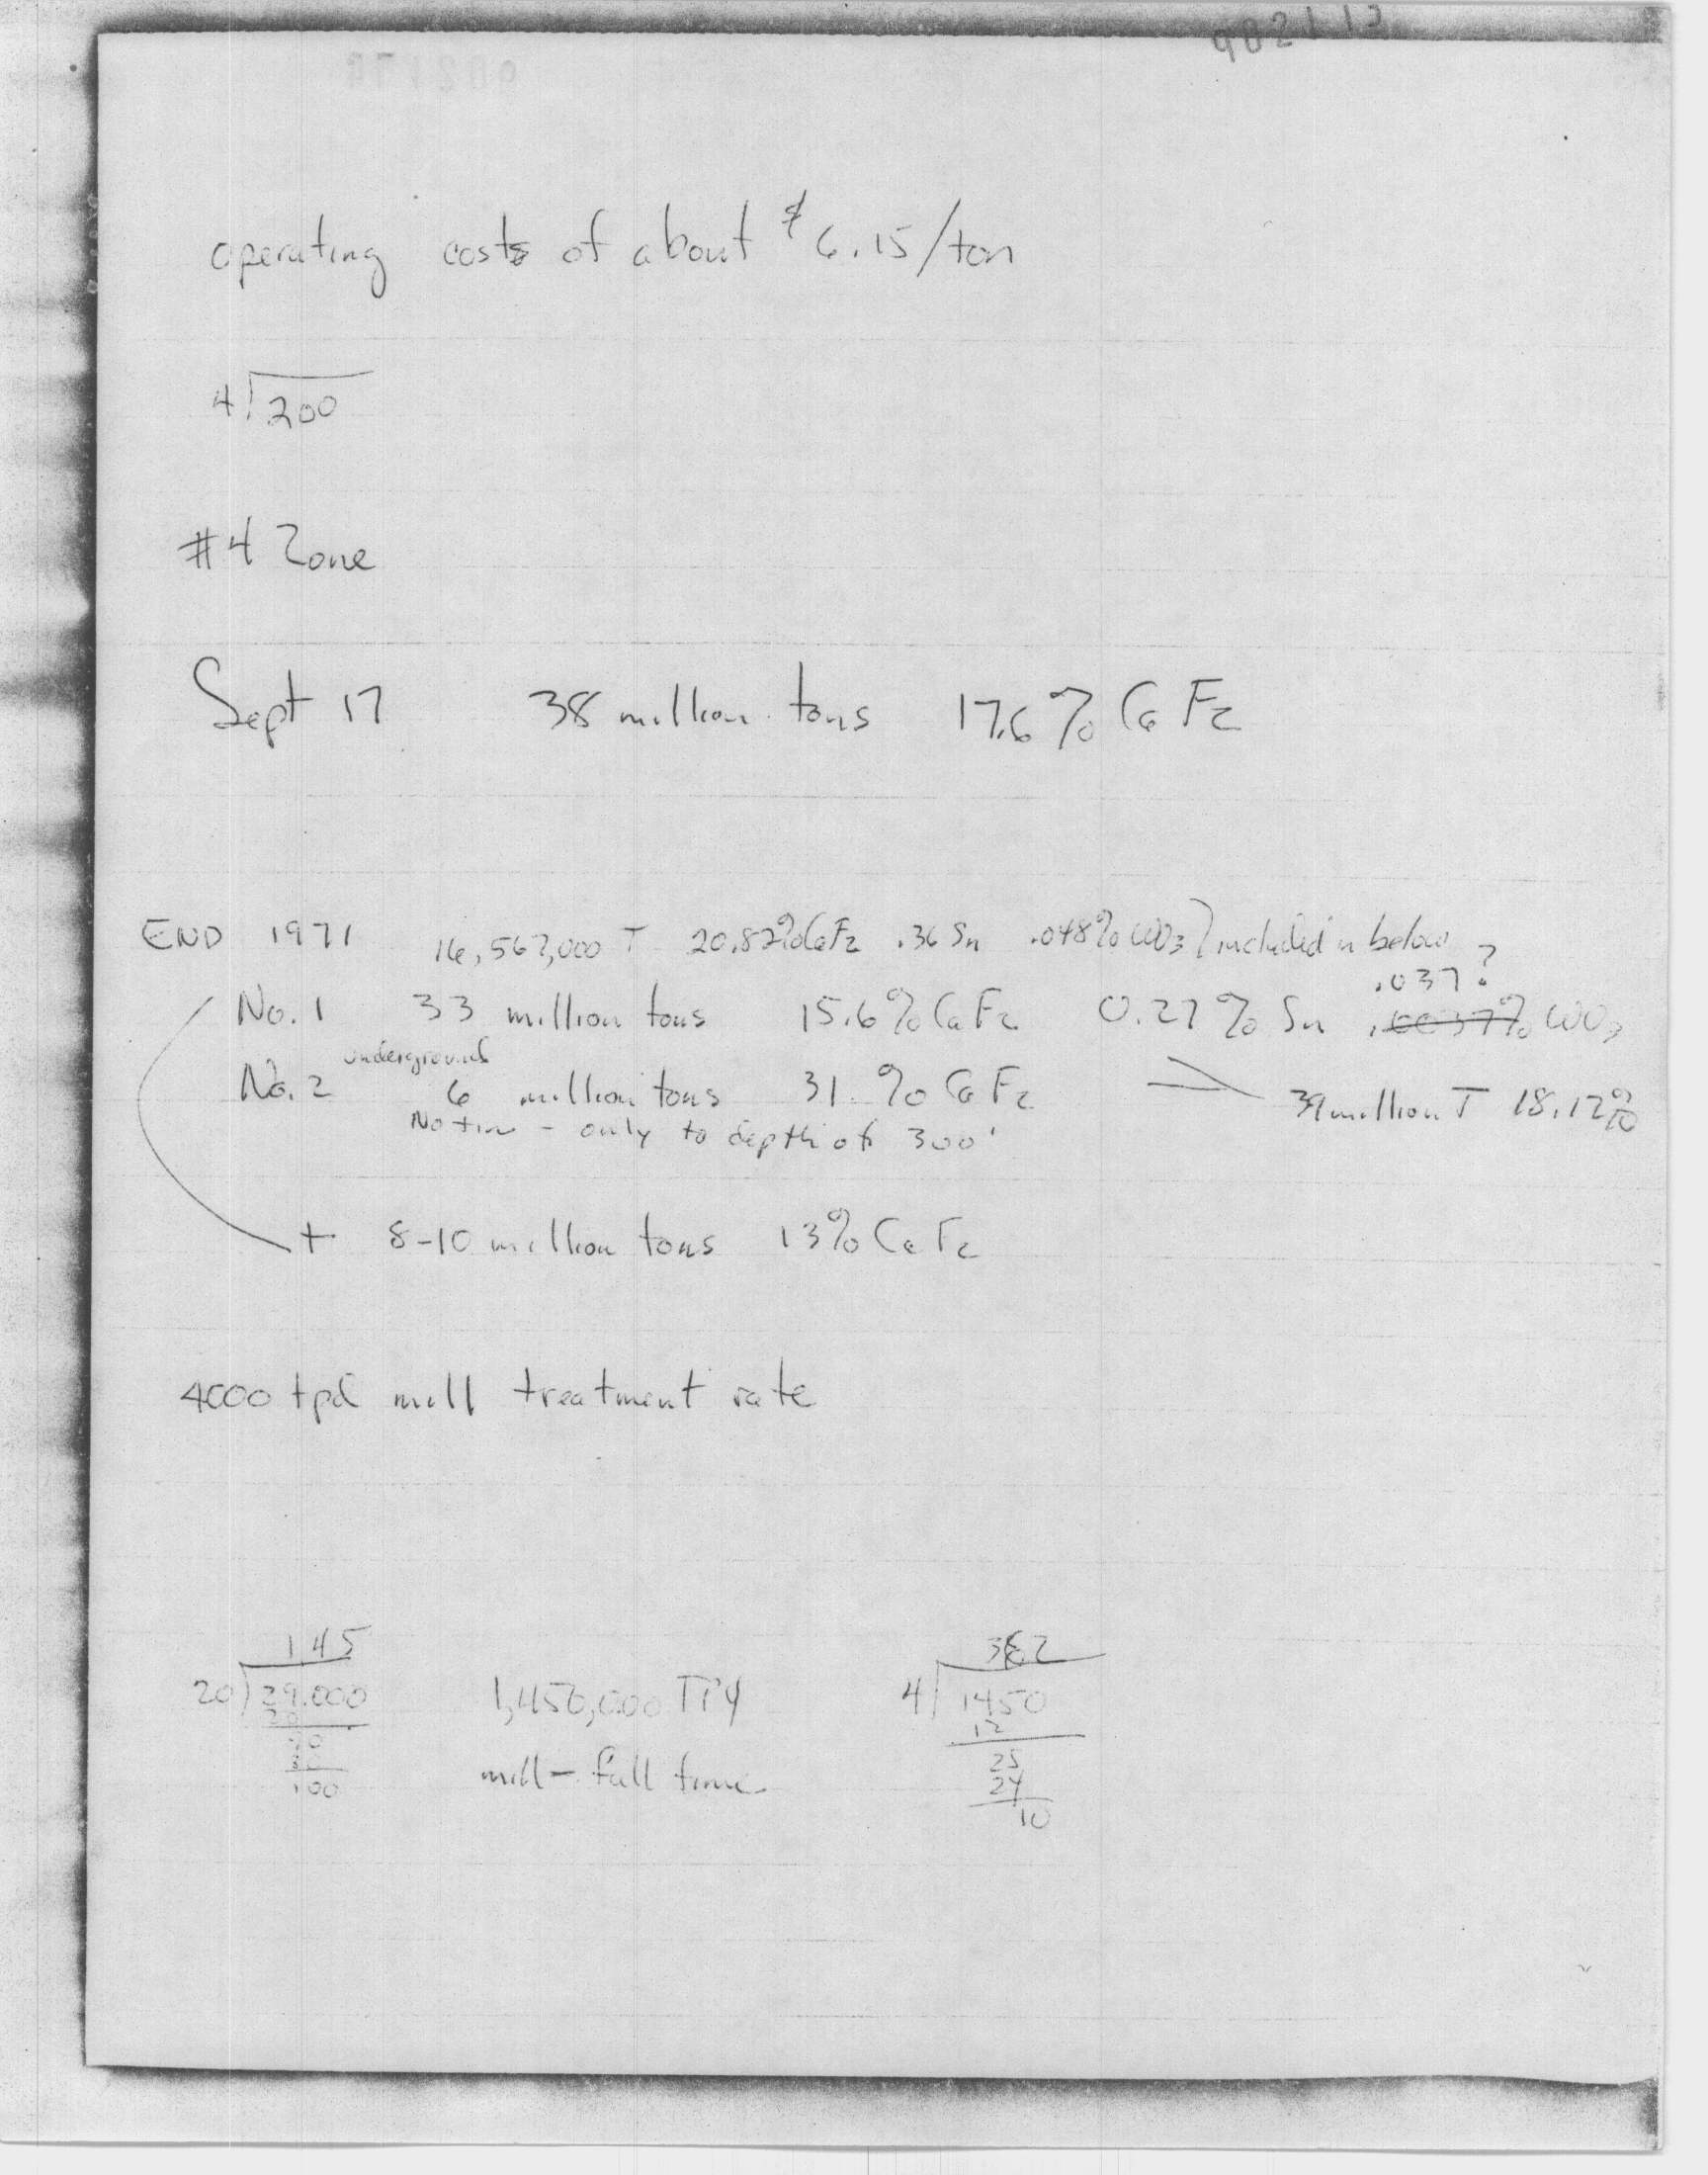 902113
operating costs of about $6.15/ton
4 200
#4 Zone
Sept 17 38 million tons 17.6% CaF2
END 1971 16,567,000 T 20.82% CaF2 .36 Sn .048% WO3 } included in below
.037?
No. 1 33 million tons 15.6% CaF2 0.27% Sn WO3
underground
No. 2 6 million tons 31. % CaF2
39 million T 18.12%
No tin - only to depth of 300'
+ 8-10 million tons 13% CaF2
4000 tpd mill treatment rate
1.45 362
20 29.000 1,450,000 TPY 4 1450
20 12
90 25
80 mill - full time 24
100 10